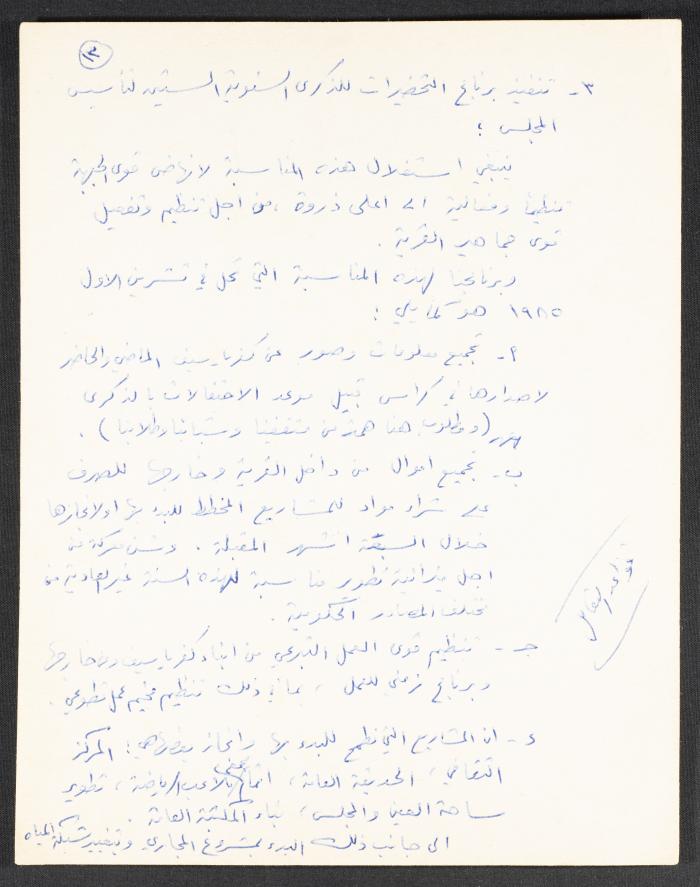 ١٢
٣- تنفيذ برنامج التحضيرات للذكرى السنوية الستين لتأسيس
المجلس :
ينبغي استغلال هذه المناسبة لانهاض قوى الجبهة
تنظيما وفعالية الى اعلى ذروة ، من اجل تنظيم وتفعيل
قوى جماهير القرية .
وبرنامجنا لهذه المناسبة التي تحل في تشرين الاول
١٩٨٥ هو كما يلي :
أ- تجميع معلومات وصور عن كفرياسيف الماضي والحاضر
لاصدارها في كراس قبيل موعد الاحتفالات بالذكرى
(ومطلوب هنا همة من مثقفينا وشبابنا وطلابنا) .
ب- تجميع اموال من داخل القرية وخارجها للصرف
على شراء مواد للمشاريع المخطط للبدء بها او لانجازها
خلال السبعة اشهر المقبلة . وشن معركة من
اجل ميزانية تطوير مناسبة لهذه السنة غير العادية من
مختلف المصادر الحكومية .
جـ- تنظيم قوى العمل التبرعي من ابناء كفرياسيف ومن خارجها
وبرنامج زمني للعمل ، بما في ذلك تنظيم مخيم عمل تطوعي .
د- ان المشاريع التي نطمح للبدء بها وانجاز بعضها هي : المركز
الثقافي ، الحديقة العامة ، اتمام بعض الملاعب الرياضية ، تطوير
ساحة العين والمجلس ، بناء المكتبة العامة .
الى جانب ذلك البدء بمشروع المجاري وتغيير شبكة المياه